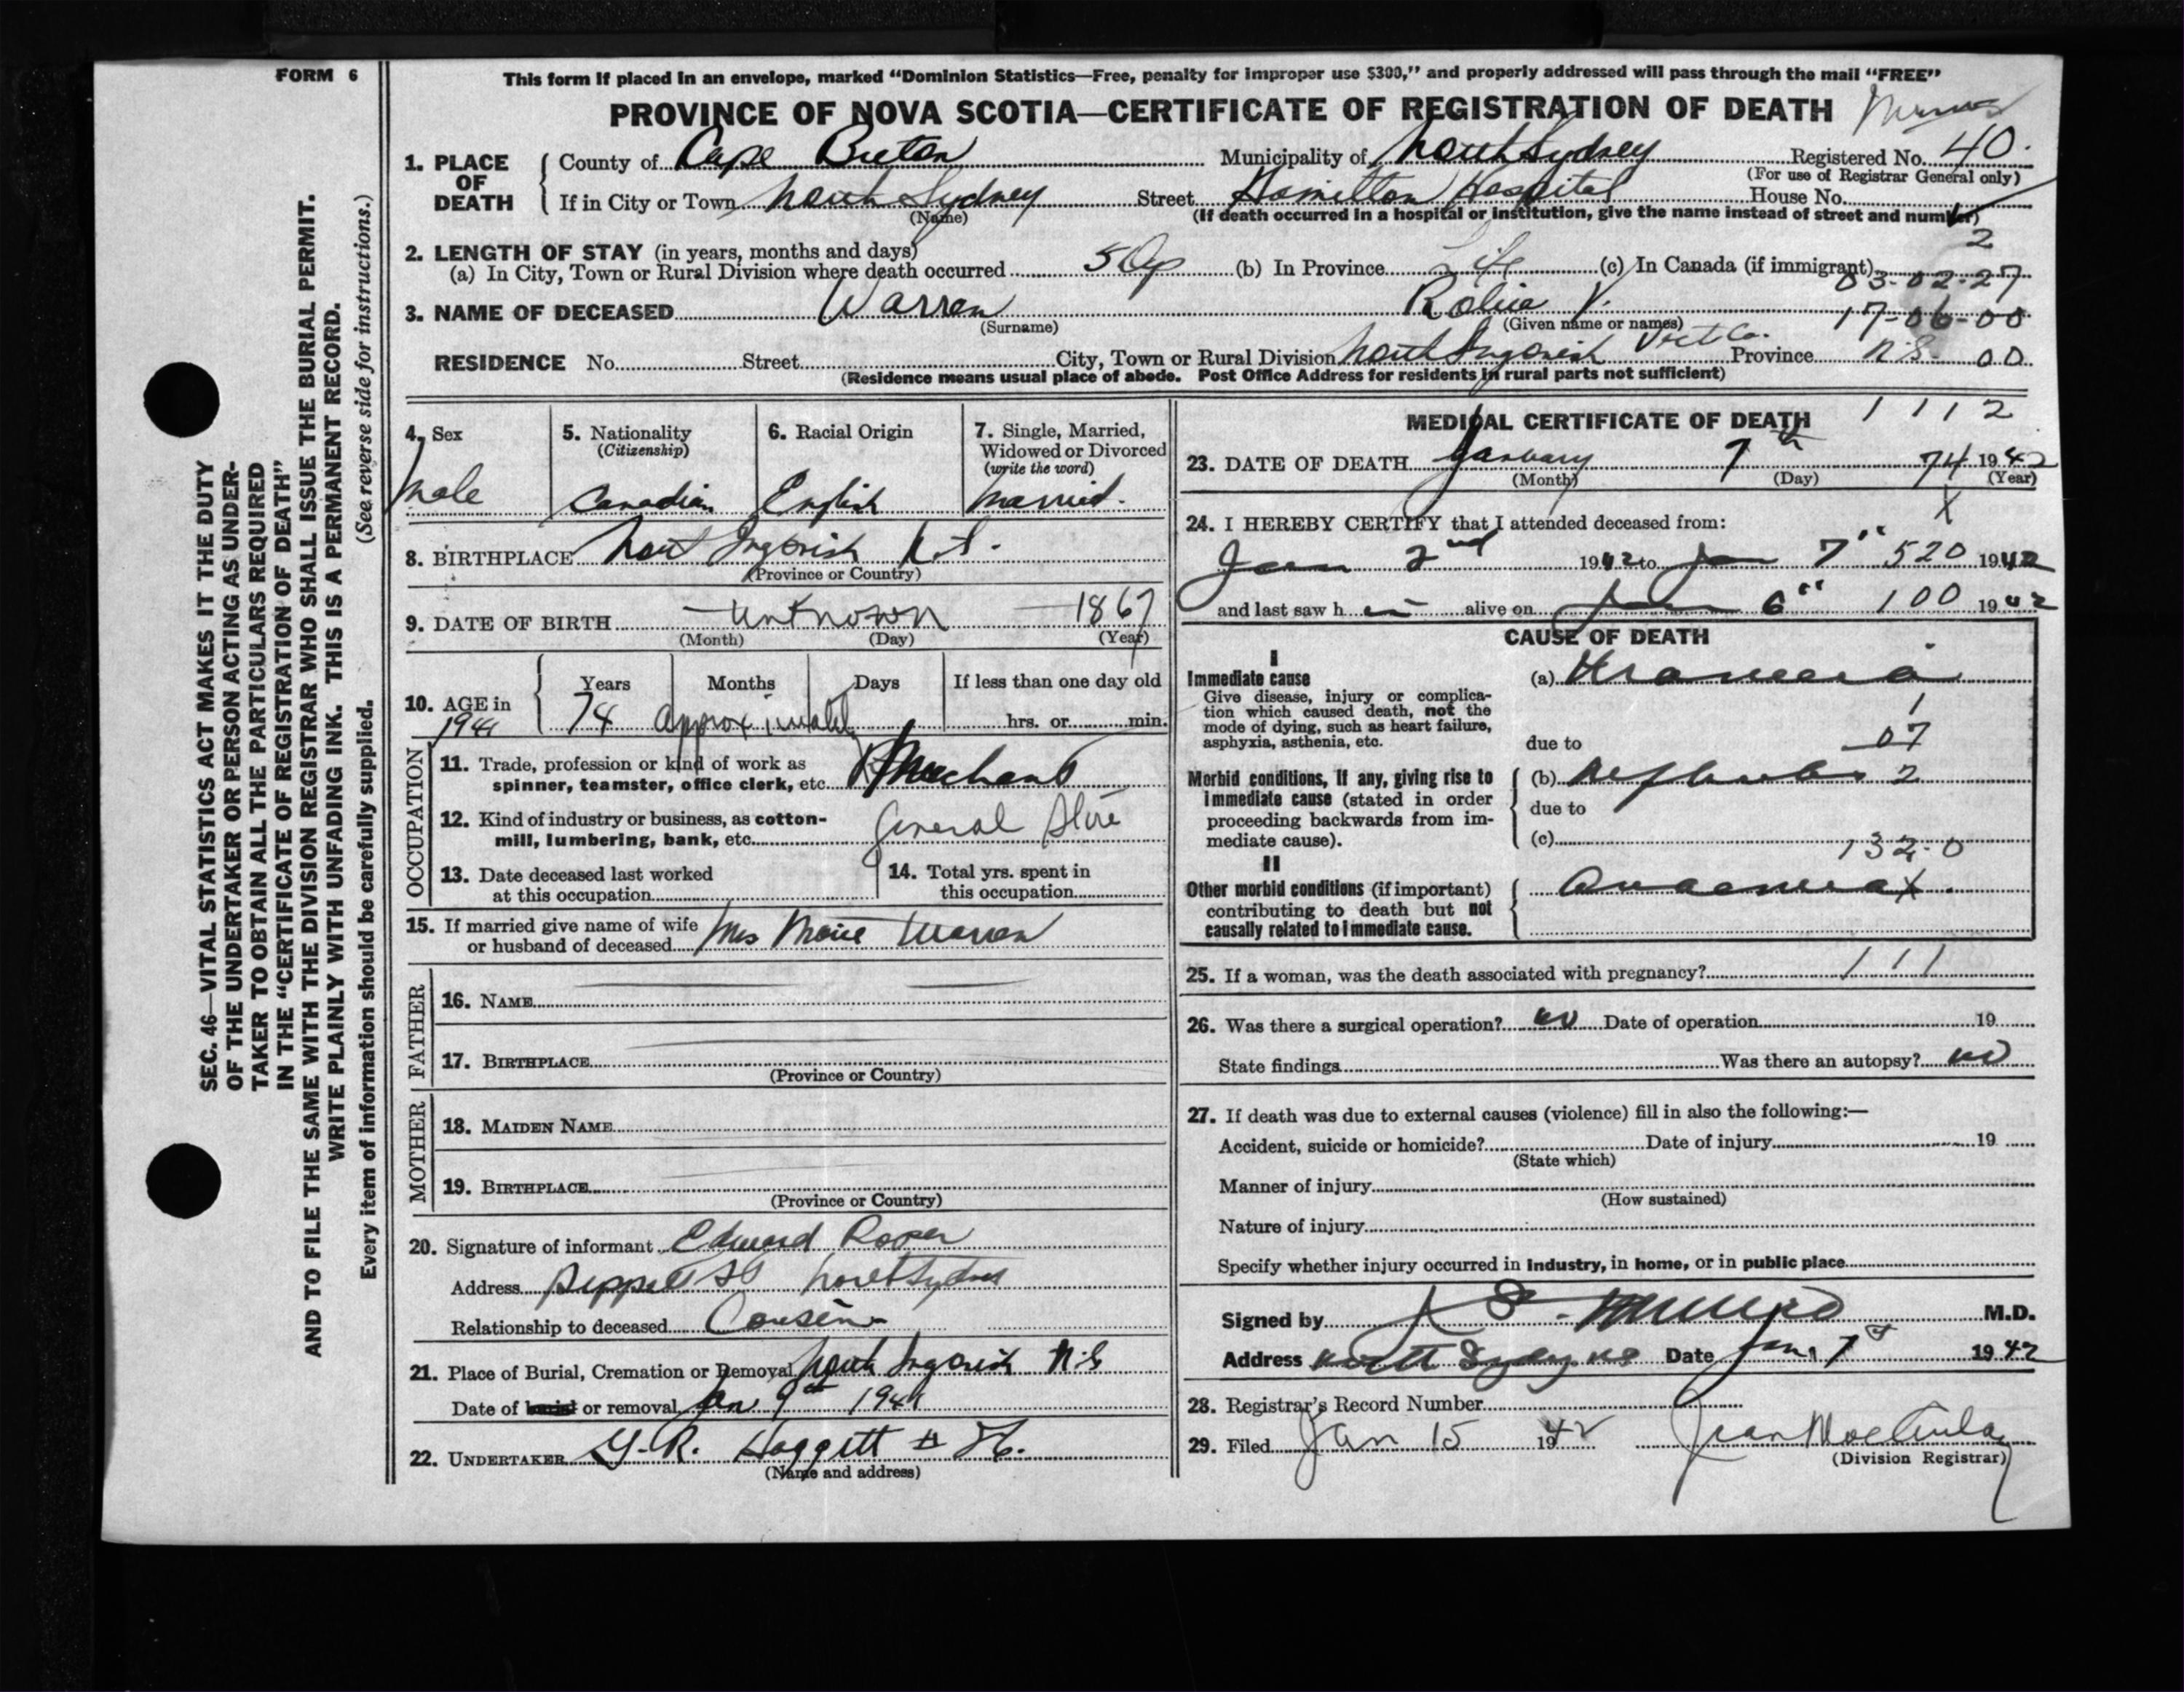 FORM 6
This form if placed in an envelope, marked "Dominion Statistics—Free, penalty for improper use $300," and properly addressed will pass through the mail "FREE"
PROVINCE OF NOVA SCOTIA—CERTIFICATE OF REGISTRATION OF DEATH
1. PLACE OF DEATH
County of Cape Breton Municipality of North Sydney Registered No. 40.
(For use of Registrar General only)
If in City or Town North Sydney Street Hamilton Hospital House No.
(Name) (If death occurred in a hospital or institution, give the name instead of street and number)
2. LENGTH OF STAY (in years, months and days) 2
(a) In City, Town or Rural Division where death occurred 5 (b) In Province Life (c) In Canada (if immigrant) 03-02-27
3. NAME OF DECEASED Warren V. 17-06-00
(Surname) (Given name or names)
RESIDENCE No. Street City, Town or Rural Division North Ingonish Vict Co. Province N.S. 00
(Residence means usual place of abode. Post Office Address for residents in rural parts not sufficient)
4. Sex
Male
5. Nationality
(Citizenship)
Canadian
6. Racial Origin
English
7. Single, Married,
Widowed or Divorced
(write the word)
Married.
8. BIRTHPLACE North Ingonish N.S.
(Province or Country)
9. DATE OF BIRTH Unknown 1867
(Month) (Day) (Year)
10. AGE in 1941
Years Months Days If less than one day old
74 Approx hrs. or min.
OCCUPATION
11. Trade, profession or kind of work as
spinner, teamster, office clerk, etc. Merchant
12. Kind of industry or business, as cotton-
mill, lumbering, bank, etc. General Store
13. Date deceased last worked
at this occupation
14. Total yrs. spent in
this occupation
15. If married give name of wife
or husband of deceased Mrs Warren
FATHER
16. NAME
17. BIRTHPLACE
(Province or Country)
MOTHER
18. MAIDEN NAME
19. BIRTHPLACE
(Province or Country)
20. Signature of informant Edward Roper
Address St North Sydney
Relationship to deceased Cousin
21. Place of Burial, Cremation or Removal North Ingonish N.S
Date of burial or removal Jan 9th 1941
22. UNDERTAKER G. R. Haggett
(Name and address)
MEDICAL CERTIFICATE OF DEATH 1112
23. DATE OF DEATH January 7th 74 1942
(Month) (Day) (Year)
X
24. I HEREBY CERTIFY that I attended deceased from:
Jan 2nd 1942 to Jan 7" 520 1942
and last saw him alive on Jan 6" 100 1942
CAUSE OF DEATH
I
Immediate cause
Give disease, injury or complica-
tion which caused death, not the
mode of dying, such as heart failure,
asphyxia, asthenia, etc.
(a) Uraemia
1
due to 07
Morbid conditions, if any, giving rise to
immediate cause (stated in order
proceeding backwards from im-
mediate cause).
(b) Nephritis 2
due to
(c) 132-0
II
Other morbid conditions (if important)
contributing to death but not
causally related to immediate cause.
Anaemia X
25. If a woman, was the death associated with pregnancy? 111
26. Was there a surgical operation? no Date of operation 19
State findings Was there an autopsy? no
27. If death was due to external causes (violence) fill in also the following:—
Accident, suicide or homicide? Date of injury 19
(State which)
Manner of injury
(How sustained)
Nature of injury
Specify whether injury occurred in industry, in home, or in public place
Signed by M.D.
Address North Sydney NS Date Jan 7 1942
28. Registrar's Record Number
29. Filed Jan 15 1942 Jean
(Division Registrar)
SEC. 46—VITAL STATISTICS ACT MAKES IT THE DUTY
OF THE UNDERTAKER OR PERSON ACTING AS UNDER-
TAKER TO OBTAIN ALL THE PARTICULARS REQUIRED
IN THE "CERTIFICATE OF REGISTRATION OF DEATH"
AND TO FILE THE SAME WITH THE DIVISION REGISTRAR WHO SHALL ISSUE THE BURIAL PERMIT.
WRITE PLAINLY WITH UNFADING INK. THIS IS A PERMANENT RECORD.
Every item of information should be carefully supplied. (See reverse side for instructions.)